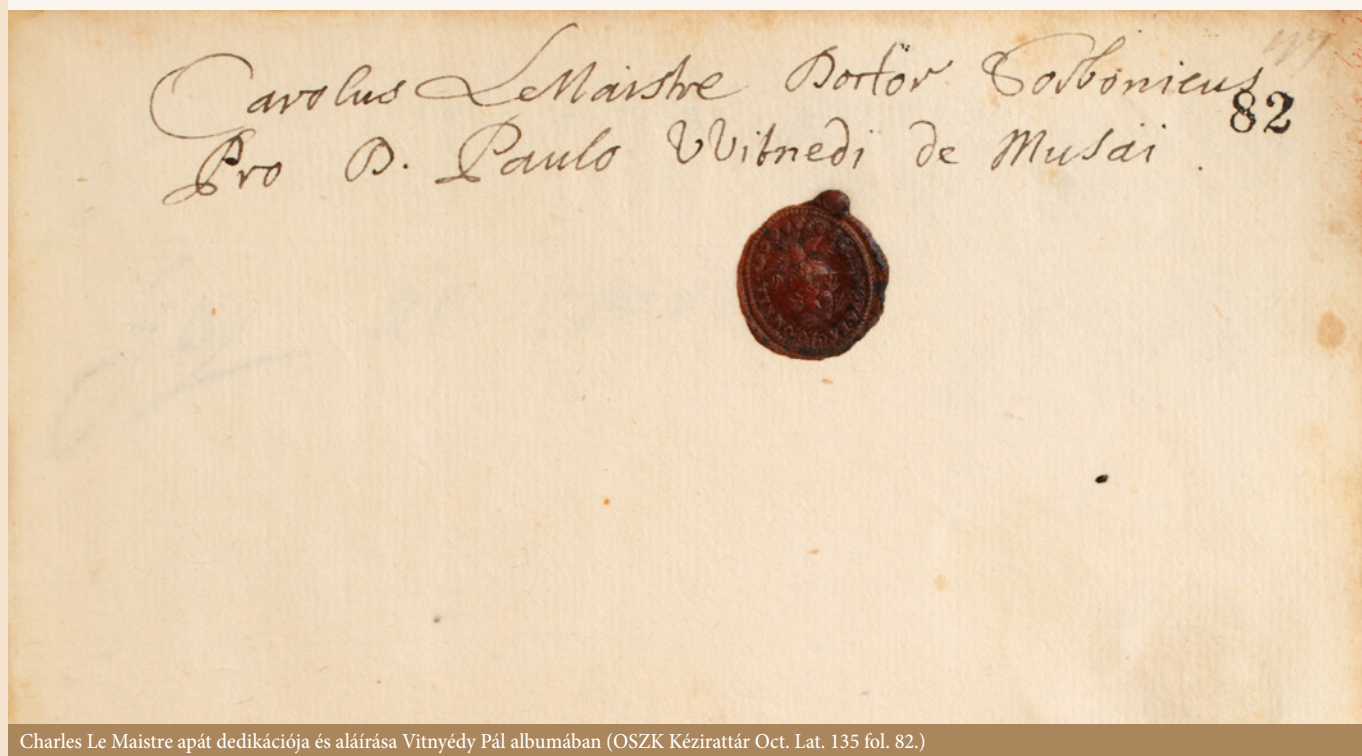 Carolus Le Maistre Doctor Sorbonicus
82
Pro D. Paulo VVitnedi de Musai .
Charles Le Maistre apát dedikációja és aláírása Vitnyédy Pál albumában (OSZK Kézirattár Oct. Lat. 135 fol. 82.)